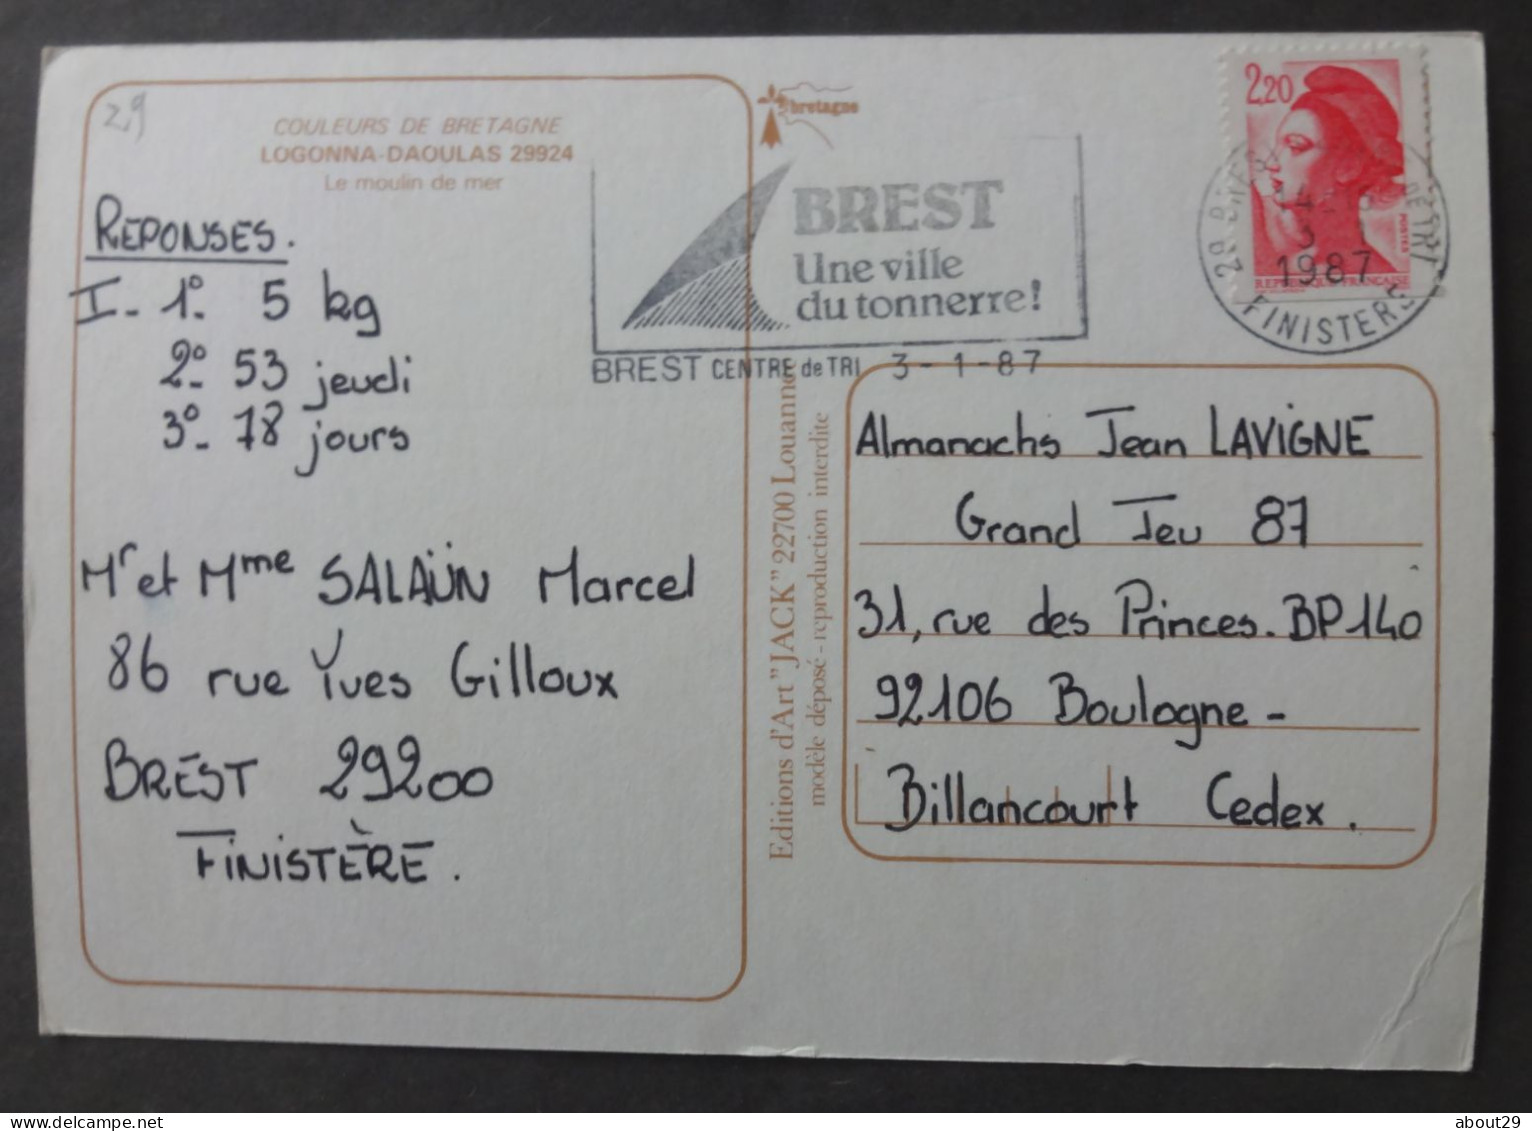 29
COULEURS DE BRETAGNE
LOGONNA-DAOULAS 29924
Le moulin de mer
REPONSES.
I- 1°- 5 kg
2°- 53 jeudi
3°- 78 jours
Mr et Mme SALAÜN Marcel
86 rue Yves Gilloux
BREST 29200
FINISTÈRE.
bretagne
BREST
Une ville
du tonnerre!
BREST CENTRE de TRI 3-1-87
Editions d'Art "JACK" 22700 Louannec
modèle déposé - reproduction interdite
2,20
POSTES
REPUBLIQUE FRANÇAISE
1987
FINISTERE
Almanachs Jean LAVIGNE
Grand Jeu 87
31, rue des Princes. BP140
92106 Boulogne -
Billancourt Cedex.
about29